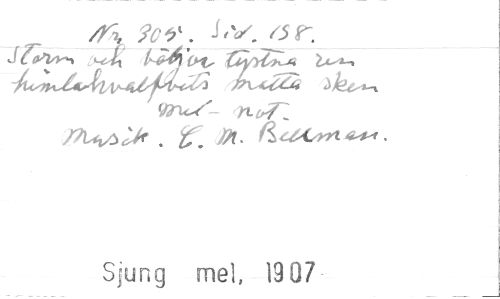 Nr. 305. Sid. 198.
Storm och böljor tystna ren
himlahvalfvets matta sken
mel - not.
Musik. C. M. Bellman.
Sjung mel, 1907